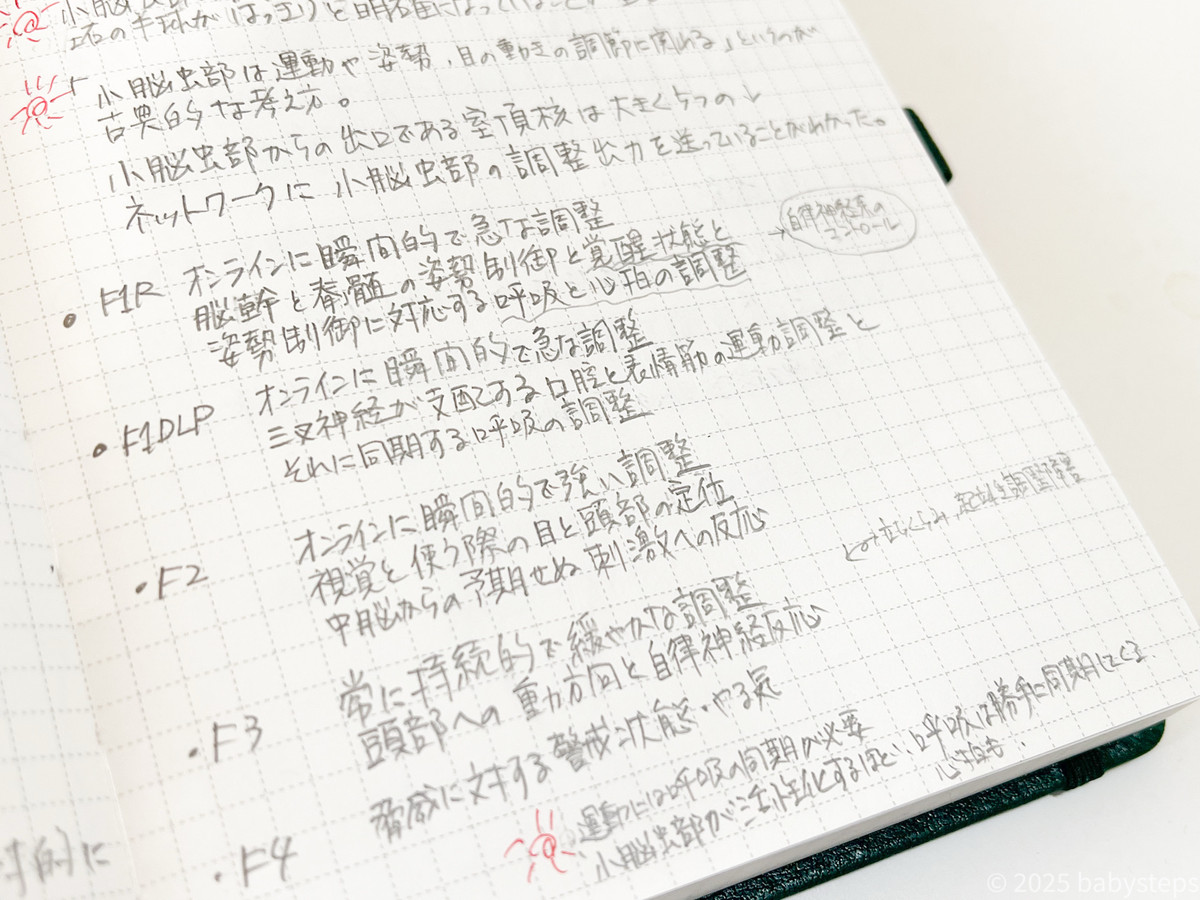 右の半球がはっきりと明確になっていることが
「小脳虫部は運動や姿勢、目の動きの調節に関わる」というのが
古典的な考え方。
小脳虫部からの出口である室頂核は大きく5つの
ネットワークに小脳虫部の調整出力を送っていることがわかった。
・F1R オンラインに瞬間的で急な調整
脳幹と脊髄の姿勢制御と覚醒状態と
姿勢制御に対応する呼吸と心拍の調整
→自律神経系の
コントロール
・F1DLP オンラインに瞬間的で急な調整
三叉神経が支配する口腔と表情筋の運動調整と
それに同期する呼吸の調整
・F2 オンラインに瞬間的で強い調整
視覚を使う際の目と頭部の定位
中脳からの予期せぬ刺激への反応
立ちくらみ、起立性調節障害
・F3 常に持続的で緩やかな調整
頭部への動方向と自律神経反応
・F4 脅威に対する警戒状態・やる気
運動には呼吸の同期が必要
小脳虫部が活性化するほど、呼吸は勝手に同期してくる
心拍も
的に
© 2025 babysteps